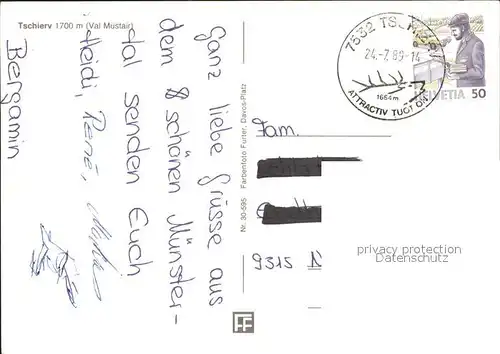 Tschierv 1700 m (Val Müstair)
Ganz liebe Grüsse aus
dem schönen Münster-
tal senden Euch
Heidi, René, Markus
Bergamin
Nr. 30-595 Farbenfoto Furter, Davos-Platz
7532 TSCHIERV
24.-7.89-14
1664m
ATTRACTIV TUOT ON
HELVETIA 50
Fam.
9315 N
privacy protection
Datenschutz
FF